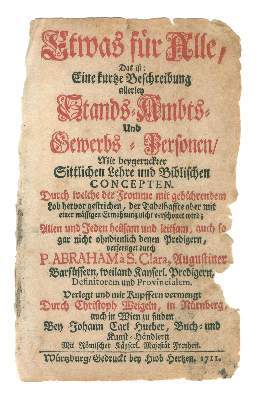 Etwas für Alle,
Das ist:
Eine kurtze Beschreibung
allerley
Stands-Ambts-
Und
Gewerbs-Personen/
Mit beygeruckter
Sittlichen Lehre und Biblischen
CONCEPTEN.
Durch welche der Fromme mit gebührendem
Lob hervor gestrichen, der Tadelhaffte aber mit
einer mässigen Ermahnung nicht verschonet wird;
Allen und Jeden heilsam und leitsam, auch so
gar nicht ohndienlich denen Predigern,
verfertiget durch
P. ABRAHAM à S. Clara, Augustiner
Barfüssern, weiland Kayserl. Predigern,
Definitorem und Provincialem.
Verlegt und mit Kupffern vermengt
Durch Christoph Weigeln, in Nürnberg,
auch in Wien zu finden
Bey Johann Carl Hueber, Buch- und
Kunst-Händlern
Mit Römischer Käyserl. Majestät Freyheit.
Würtzburg/Gedruckt bey Hiob Hertzen, 1711.